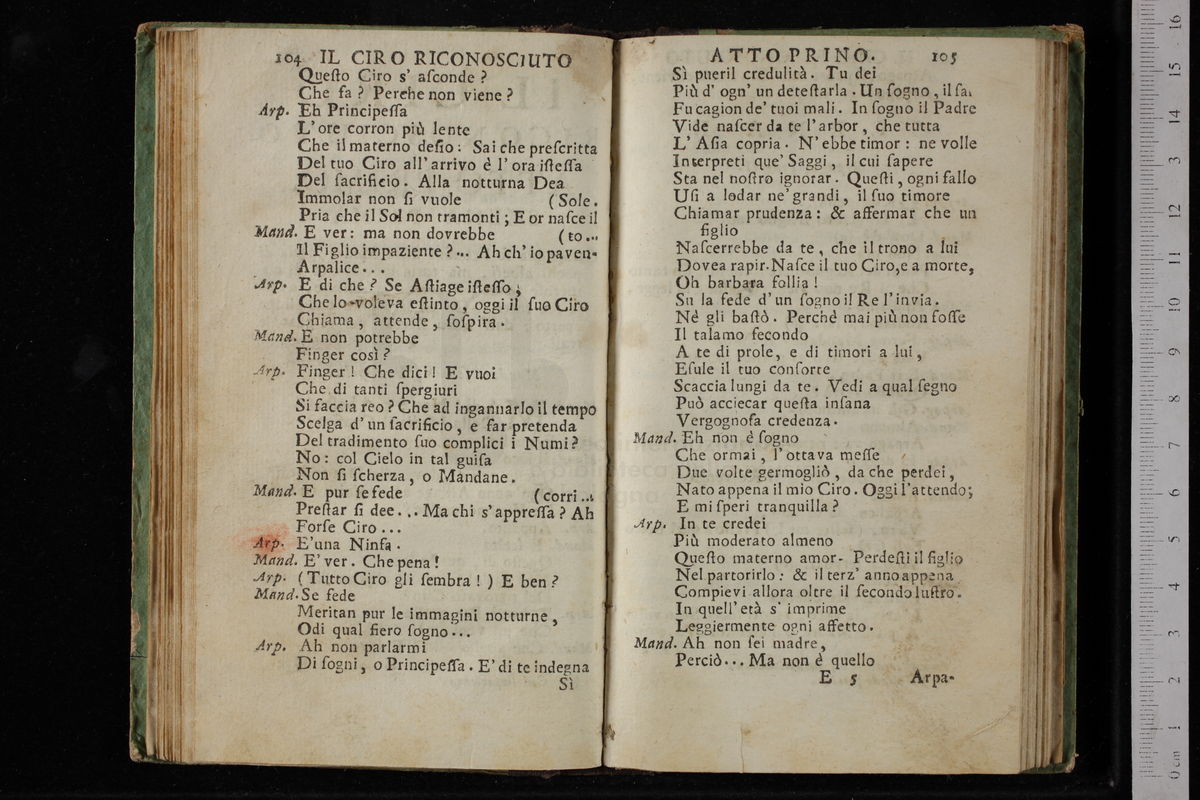 104 IL CIRO RICONOSCIUTO
Queſto Ciro s' aſconde ?
Che fa ? Perche non viene ?
Arp. Eh Principeſſa
L'ore corron più lente
Che il materno deſio : Sai che preſcritta
Del tuo Ciro all'arrivo è l'ora iſteſſa
Del ſacrificio. Alla notturna Dea
Immolar non ſi vuole (Sole.
Pria che il Sol non tramonti ; E or naſce il
Mand. E ver: ma non dovrebbe (to...
Il Figlio impaziente ?... Ah ch'io paven-
Arpalice...
Arp. E di che ? Se Aſtiage iſteſſo,
Che lo voleva eſtinto, oggi il ſuo Ciro
Chiama, attende, ſoſpira.
Mand. E non potrebbe
Finger così ?
Arp. Finger ! Che dici ! E vuoi
Che di tanti ſpergiuri
Si faccia reo ? Che ad ingannarlo il tempo
Scelga d'un ſacrificio, e far pretenda
Del tradimento ſuo complici i Numi ?
No : col Cielo in tal guiſa
Non ſi ſcherza, o Mandane.
Mand. E pur ſe fede (corri...
Preſtar ſi dee... Ma chi s'appreſſa ? Ah
Forſe Ciro...
Arp. E'una Ninfa.
Mand. E'ver. Che pena !
Arp. (Tutto Ciro gli ſembra ! ) E ben ?
Mand. Se fede
Meritan pur le immagini notturne,
Odi qual fiero ſogno...
Arp. Ah non parlarmi
Di ſogni, o Principeſſa. E'di te indegna
Sì
ATTO PRINO. 105
Sì pueril credulità. Tu dei
Più d'ogn'un deteſtarla. Un ſogno, il ſai
Fu cagion de'tuoi mali. In ſogno il Padre
Vide naſcer da te l'arbor, che tutta
L'Aſia copria. N'ebbe timor : ne volle
Interpreti que'Saggi, il cui ſapere
Sta nel noſtro ignorar. Queſti, ogni fallo
Uſi a lodar ne'grandi, il ſuo timore
Chiamar prudenza : & affermar che un
figlio
Naſcerrebbe da te, che il trono a lui
Dovea rapir. Naſce il tuo Ciro, e a morte,
Oh barbara follia !
Su la fede d'un ſogno il Re l'invia.
Nè gli baſtò. Perchè mai più non foſſe
Il talamo fecondo
A te di prole, e di timori a lui,
Eſule il tuo conſorte
Scaccia lungi da te. Vedi a qual ſegno
Può acciecar queſta inſana
Vergognoſa credenza.
Mand. Eh non è ſogno
Che ormai, l'ottava meſſe
Due volte germogliò, da che perdei,
Nato appena il mio Ciro. Oggi l'attendo;
E mi ſperi tranquilla ?
Arp. In te credei
Più moderato almeno
Queſto materno amor. Perdeſti il figlio
Nel partorirlo : & il terz'anno appena
Compievi allora oltre il ſecondo luſtro.
In quell'età s'imprime
Leggiermente ogni affetto.
Mand. Ah non ſei madre,
Perciò... Ma non è quello
E 5 Arpa-